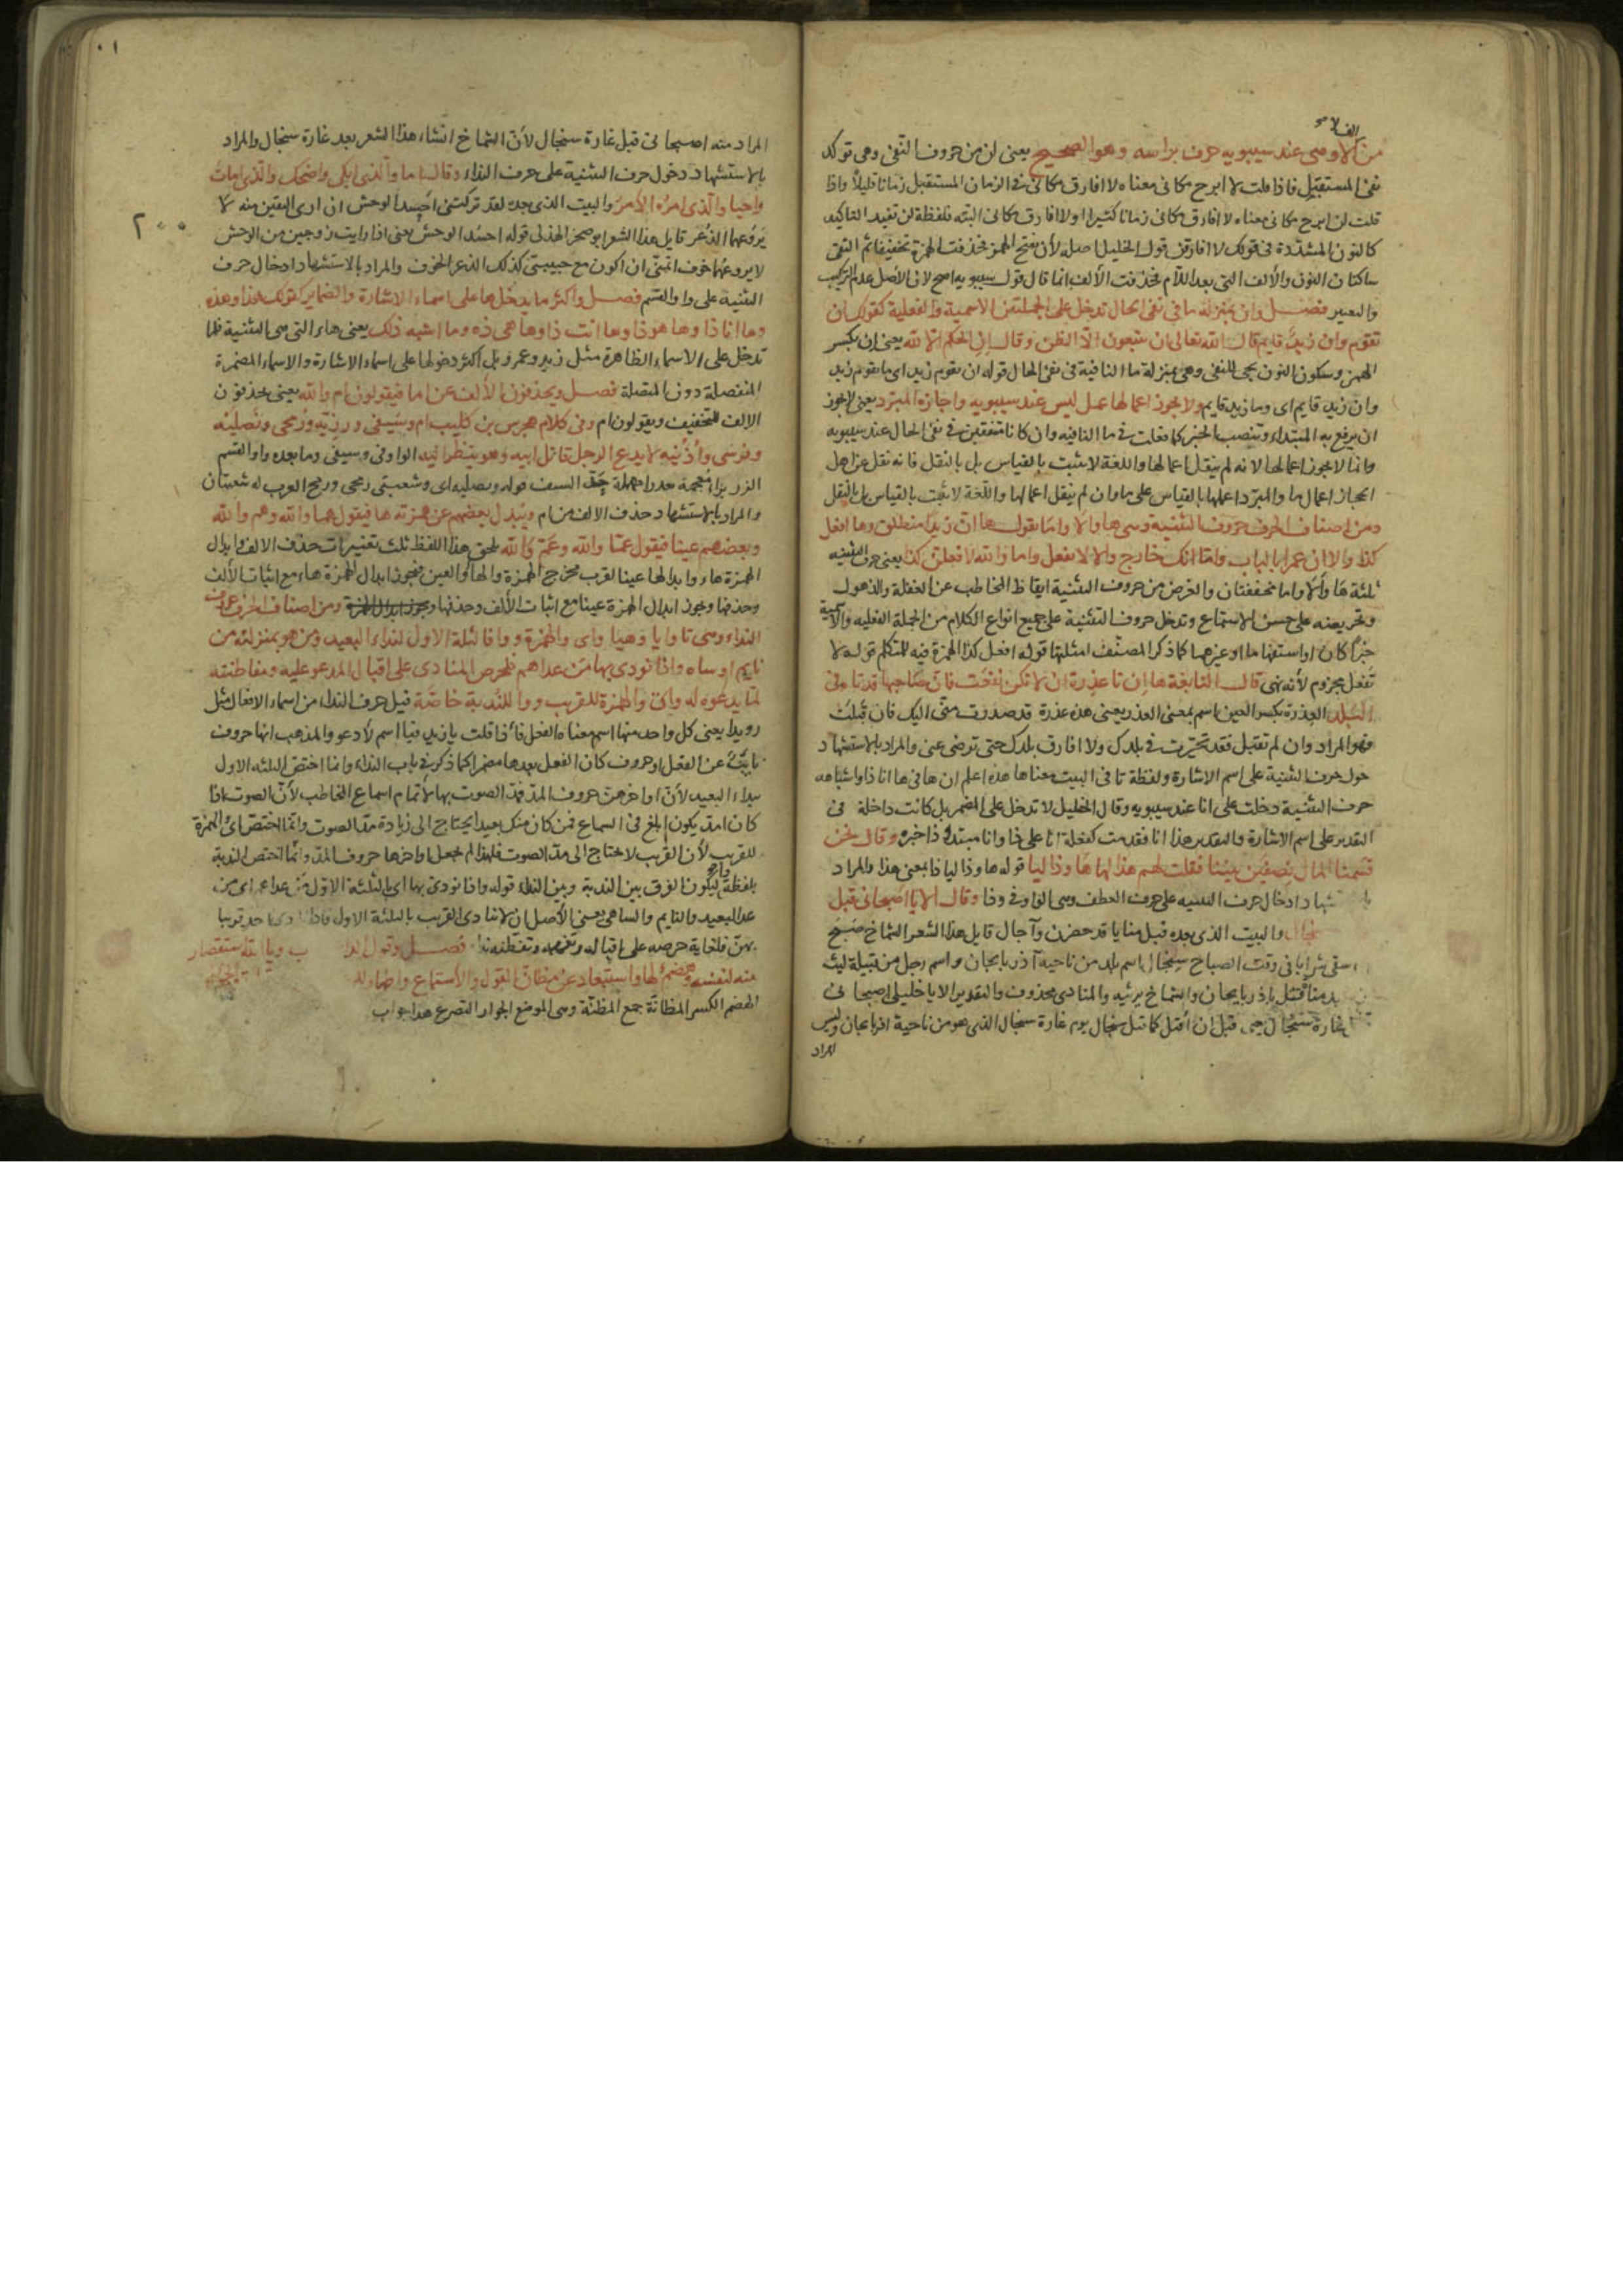 من لا وهى عند سيبويه حرف براسه وهو الصحيح يعنى لن من حروف النفى وهى توكد
نفى المستقبل فاذا قلت لا ابرح مكانى معناه لا افارق مكانى فى الزمان المستقبل زمانا قليلا واذا
قلت لن ابرح مكانى معناه لا افارق مكانى زمانا كثيرا اولا افارق مكانى البتة فلفظة لن تفيد التاكيد
كالنون المشددة فى قولك لا افارقن قول الخليل اصله لأن بفتح الهمز فحذفت الهمزة تخفيفا ثم التقى
ساكنان النون والألف التى بعد اللام فحذفت الألف انما قال قول سيبويه اصح لان الأصل عدم التركيب
والتغيير فصل وان بمنزلة ما فى نفى الحال تدخل على الجملتين الاسمية والفعلية كقولك ان
تقوم وان زيد قايم قال الله تعالى ان تتبعون الا الظن وقال ان الحكم الا لله يعنى ان بكسر
الهمز وسكون النون يجى للنفى وهى بمنزلة ما النافية فى نفى الحال قوله ان يقوم زيد اى ما يقوم زيد
وان زيد قايم اى وما زيد قايم ولا يجوز اعمالها عمل ليس عند سيبويه واجازه المبرد يعنى لا يجوز
ان يرفع به المبتداء وتنصب الخبر كما فعلت فى ما النافيه وان كانا متفقين فى نفى الحال عند سيبويه
وانما لا يجوز اعمالها لانه لم ينقل اعمالها واللغة لا يثبت بالقياس بل بالنقل فانه نقل عن اهل
الحجاز اعمال ما والمبرد اعملها بالقياس على ما وان لم ينقل اعمالها واللغة لا تثبت بالقياس بل بالنقل
ومن اصناف الحرف حروف التنبيه وهى ها والا واما تقول ها ان زيدا منطلق وها افعل
كذا والا ان عمرا بالباب واما انك خارج والا لا تفعل واما والله لافعلن كذا يعنى حرف التنبيه
ثلثة ها وألا واما مخففتان والغرض من حروف التنبيه ايقاظ المخاطب عن الغفلة والذهول
وتحريصه على حسن الاستماع وتدخل حروف التنبيه على جميع انواع الكلام من الجملة الفعليه والاسمية
خبرا كان او استفهاما او غيرهما كما ذكر المصنف امثلتها قوله افعل كذا الهمزة فيه للمتكلم قوله لا
تفعل مجزوم لأنه نهى قال النابغة ها ان تا عذرة ان لا تكن نفعت فان صاحبها قد تاه فى
البلد العذرة بكسر العين اسم بمعنى العذر يعنى هذه عذرة قد صدرت منى اليك فان قبلت
فهو المراد وان لم تقبل فقد تحيرت فى بلدك ولا افارق بلدك حتى ترضى عنى والمراد بالاستشهاد
حول حرف التنبيه على اسم الاشارة ولفظة تا فى البيت معناها هذه اعلم ان ها فى ها انا ذا واشباهه
حرف التنبيه دخلت على انا عند سيبويه وقال الخليل لا تدخل على المضمر بل كانت داخلة فى
التقدير على اسم الاشارة والتقدير هذا انا فقدمت كفعلة انا على ذا وانا مبتداء ذا خبره وقال نحن
قسمنا المال نصفين بيننا فقلت لهم هذا لها ها وذاليا قوله ها وذاليا ذا بمعنى هذا والمراد
شهاد ادخال حرف التنبيه على حرف العطف وهى الواو فى وذا وقال الا يا اصبحانى قبل
والبيت الذى بعده قبل منايا قد حضرن وآجال قايل هذا الشعر الشماخ صبح
سقى شرابا فى وقت الصباح سنجال اسم بلد من ناحية آذربايجان واسم رجل من قبيلة ليث
قتل باذربايجان والشماخ يرثيه والمنادى محذوف والتقدير الا يا خليلى اصبحانى
غارة سنجال يعنى قبل ان اقتل كما قتل سنجال يوم غارة سنجال الذى هو من ناحية اذربايجان وليس
المراد
٢٠٠
المراد منه اصبحانى قبل غارة سنجال لأن الشماخ انشاء هذا الشعر بعد غارة سنجال والمراد
بالاستشهاد دخول حرف التنبيه على حرف النداء وقال اما والذى ابكى واضحك والذى امات
واحيا والذى امره الأمر والبيت الذى بعده لقد تركتنى احسد الوحش ان ارى اليفين منه لا
يروعهما الذعر قايل هذا الشعر ابو صخر الهذلى قوله احسد الوحش يعنى اذا رايت زوجين من الوحش
لا يروعهما خوف اتمنى ان اكون مع حبيبتى كذلك الذعر الخوف والمراد بالاستشهاد ادخال حرف
التنبيه على واو القسم فصل واكثر ما يدخل ها على اسماء الاشارة والضماير كقولك هذا وهذه
وها انا ذا وها هو ذا وها انت ذا وها هى ذه وما اشبه ذلك يعنى هاء التى هى التنبيه قلما
تدخل على الاسماء الظاهرة مثل زيد وعمرو بل اكثر دخولها على اسماء الاشارة والاسماء المضمرة
المنفصلة دون المتصلة فصل ويحذفون الألف عن اما فيقولون ام والله يعنى يحذفون
الالف للتخفيف ويقولون ام وفى كلام هجرس بن كليب ام وسيفى وزريه ورمحى ونصليه
وفرسى واذنيه لا يدع الرجل قاتل ابيه وهو ينظر اليه الواو فى وسيفى وما بعده واو القسم
الزر بزا معجمة بعد را مهملة حد السيف قوله ونصليه اى وشعبتى رمحى ورمح العرب له شعبتان
والمراد بالاستشهاد حذف الالف من ام ويبدل بعضهم عن همزته ها فيقول هما والله وهم والله
وبعضهم عينا فيقول عما والله وعم والله لحق هذا اللفظ ثلث تغييرات حذف الالف وابدال
الهمزة هاء وابدالها عينا لقرب مخرج الهمزة والهاء والعين فيجوز ابدال الهمزة هاء مع اثبات الألف
وحذفها ويجوز ابدال الهمزة عينا مع اثبات الألف وحذفها ومن اصناف الحرف حروف
النداء وهى يا وايا وهيا واى والهمزة ووا فالثلثة الاول لنداء البعيد ومن هو بمنزلته من
نايم او ساه واذا نودى بها من عداهم فلحرص المنادى على اقبال المدعو عليه ومفاطنته
لما يدعوه له واى والهمزة للقريب ووا للندبة خاصة قيل حرف النداء من اسماء الافعال مثل
رويدا يعنى كل واحد منها اسم معناه الفعل فاذا قلت يا زيد فيا اسم لأدعو والمذهب انها حروف
نايبة عن الفعل او حروف كان الفعل بعدها مضمرا كما ذكر فى باب النداء وانما اختص الثلثه الاول
بنداء البعيد لأن اواخرهن حروف المد فمد الصوت بها لاتمام اسماع المخاطب لأن الصوت اذا
كان امد يكون ابلغ فى السماع فمن كان منك بعيدا يحتاج الى زيادة مد الصوت وانما اختص اى والهمزة
للقريب لأن القريب لا يحتاج الى مد الصوت فلهذا لم يجعل اواخرها حروف المد وانما اختص الندبة
بلفظة وا ليكون الفرق بين الندبة وبين النداء قوله واذا نودى بها اى بالثلثة الاول من عداهم اى من
عدا البعيد والنايم والساهى يعنى الأصل ان لا تنادى القريب بالثلثة الاول فاذا نودى احد قريبا
بهن فلغاية حرصه على اقباله وتفهمه وتفطنه فصل وقول ب ويا الله استقصار
منه لنفسه وهضم لها واستبعاد عن مظان القبول والاستماع واظهار
الهضم الكسر المظانة جمع المظنة وهى الموضع الجوار التضرع هذا جواب